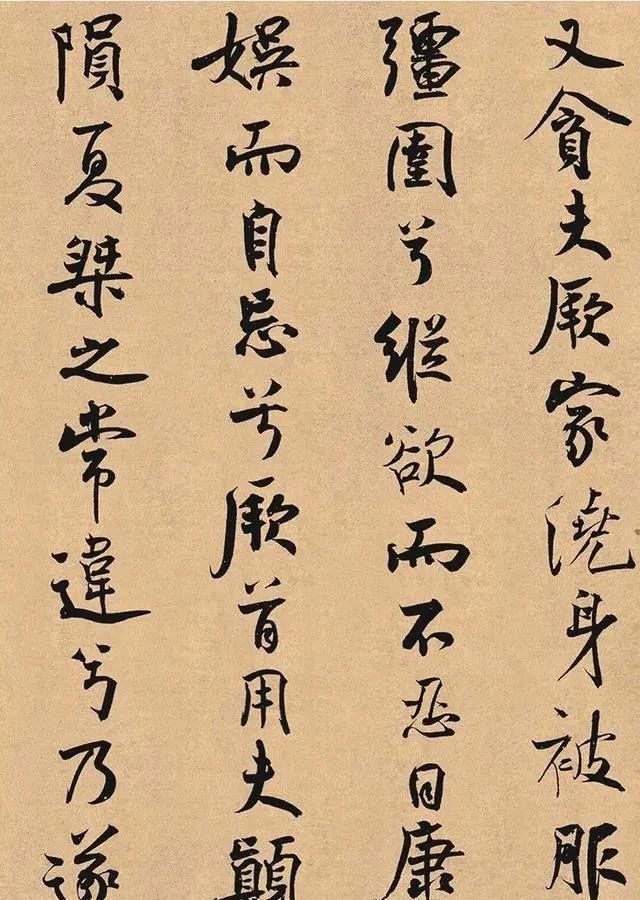 又貪夫厥家澆身被服
彊圉兮縱欲而不忍日康
娛而自忘兮厥首用夫顛
隕夏桀之常違兮乃遂